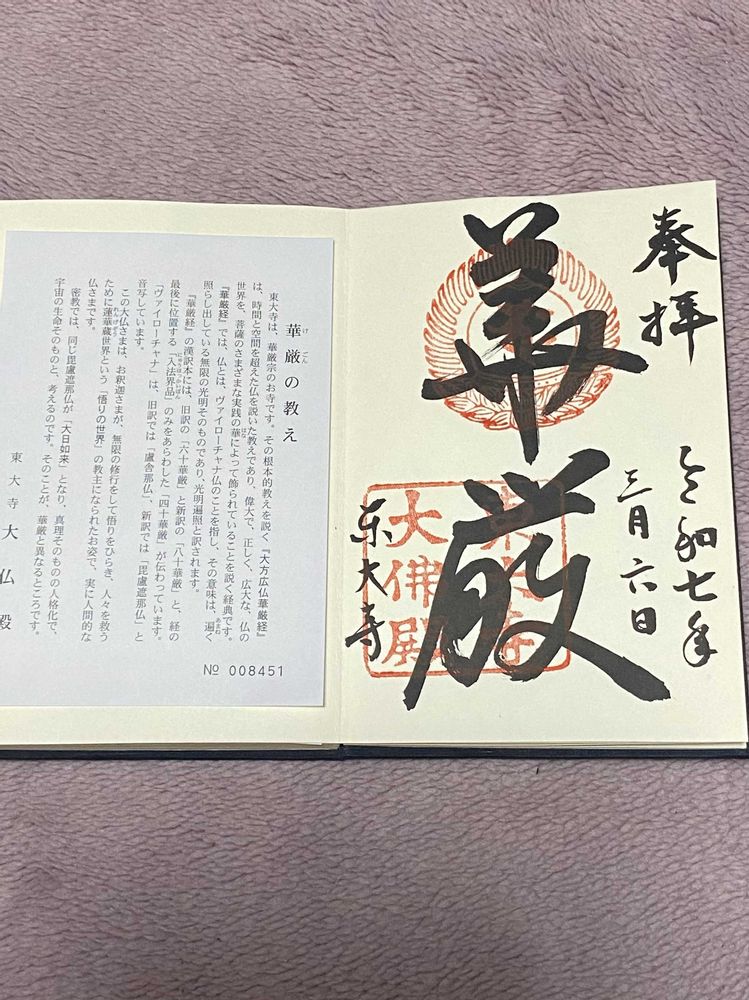 奉拝
令和七年
三月六日
華厳
東大寺
東大寺
大佛殿
華厳の教え
けごん
東大寺は、華厳宗のお寺です。その根本的教えを説く『大方広仏華厳経』
は、時間と空間を超えた仏を説いた教えであり、偉大で、正しく、広大な、仏の
世界を、菩薩のさまざまな実践の華によって飾られていることを説く経典です。
『華厳経』では、仏とは、ヴァイローチャナ仏のことを指し、その意味は、遍く
あまね
照らし出している無限の光明そのものであり、光明遍照と訳されます。
『華厳経』の漢訳本には、旧訳の「六十華厳」と新訳の「八十華厳」と、経の
最後に位置する「入法界品」のみをあらわした「四十華厳」が伝わっています。
にゅうほっかいぼん
「ヴァイローチャナ」は、旧訳では「盧舎那仏」、新訳では「毘盧遮那仏」と
音写しています。
この大仏さまは、お釈迦さまが、無限の修行をして悟りをひらき、人々を救う
ために蓮華蔵世界という「悟りの世界」の教主になられたお姿で、実に人間的な
れんげぞう
仏さまです。
密教では、同じ毘盧遮那仏が「大日如来」となり、真理そのものの人格化で、
宇宙の生命そのものと、考えるのです。そのことが、華厳と異なるところです。
東大寺 大仏殿
№ 008451